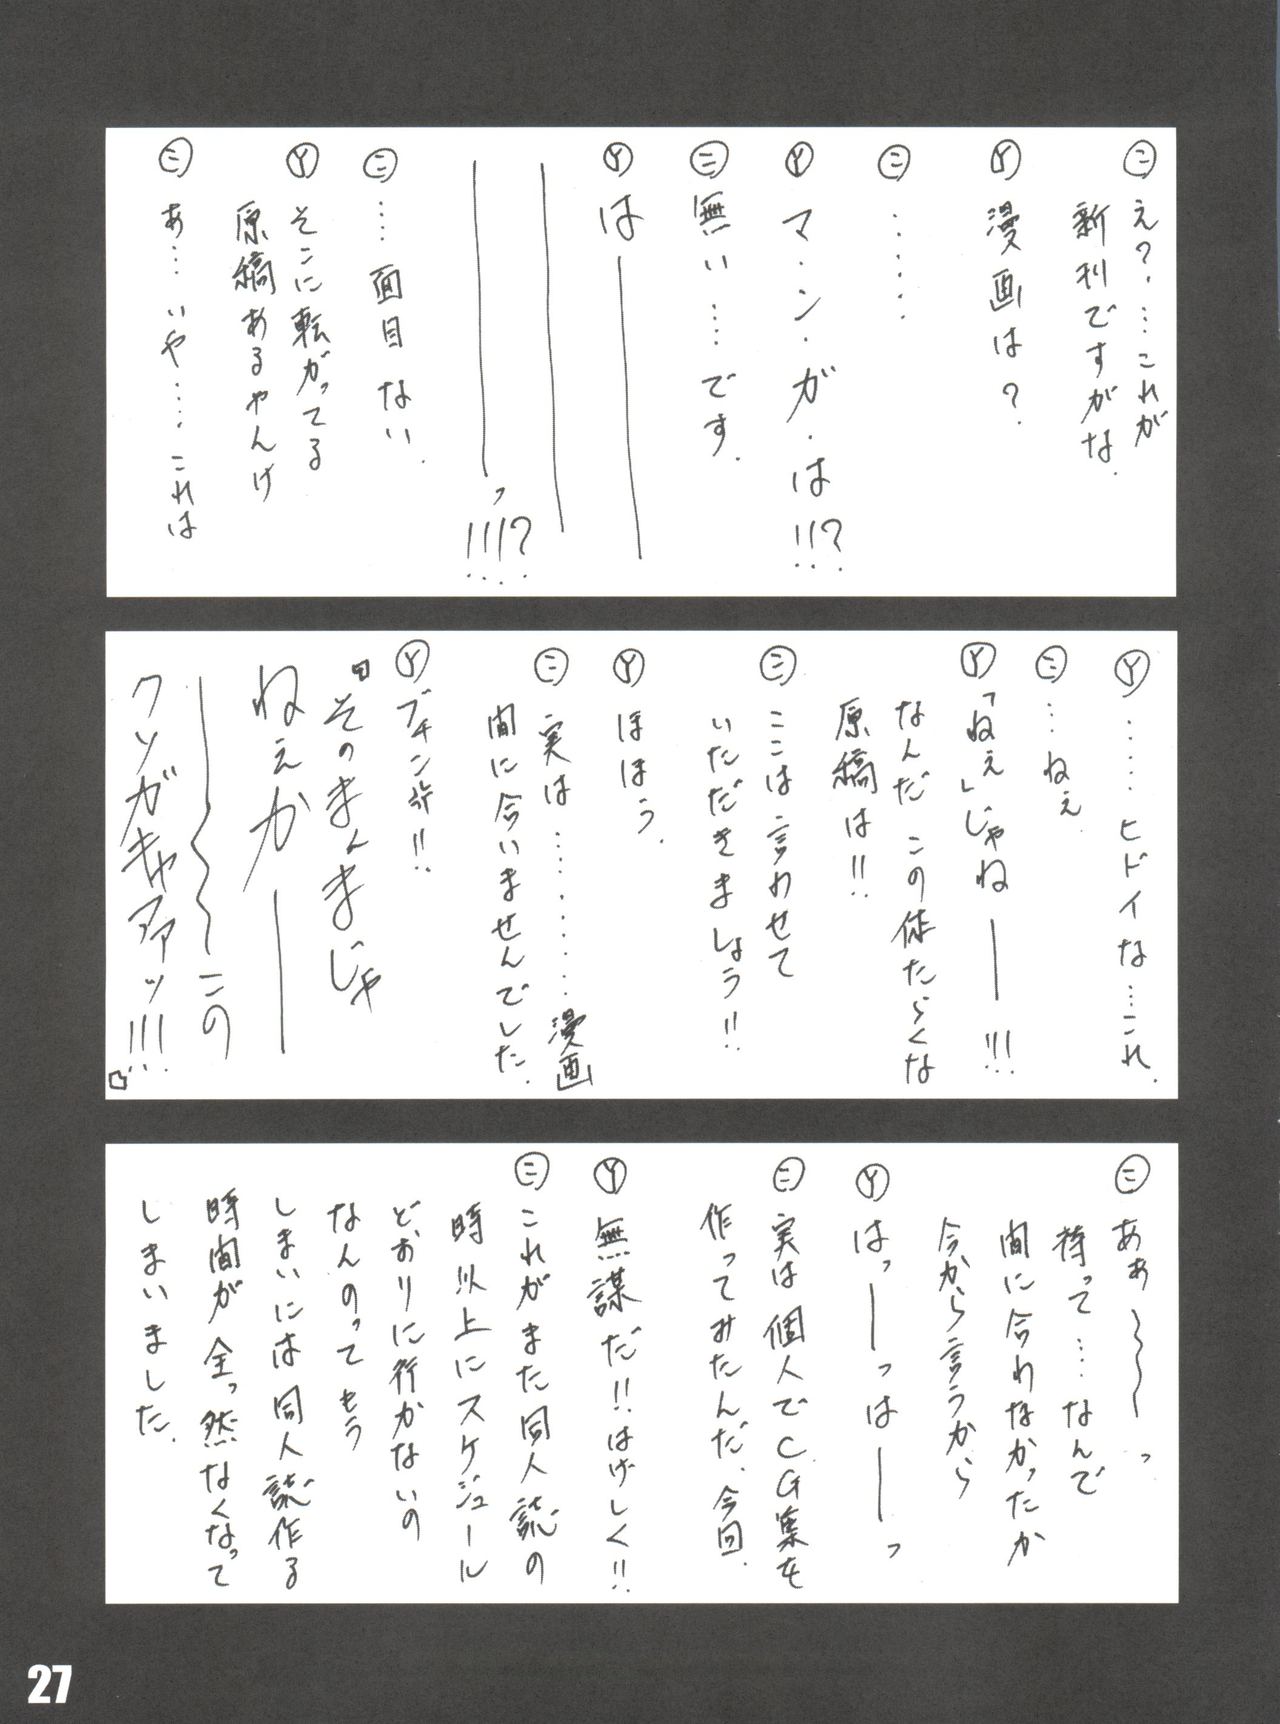 ㋙え?…これが
新刊ですがな.
Ⓨ漫画は?
㋙……
Ⓨマ・ン・ガ・は!!?
㋙無い…です.
Ⓨは――
――
――っ!!!?
㋙…面目ない.
Ⓨそこに転がってる
原稿あるやんけ
㋙あ…いや…これは
Ⓨ……ヒドイな…これ.
㋙…ねぇ
Ⓨ「ねぇ」じゃねー!!!
なんだこの体たらくな
原稿は!!
㋙ここは言わせて
いただきましょう!!
Ⓨほほう.
㋙実は………漫画
間に合いませんでした.
Ⓨブチン※!!
『そのまんまじゃ
ねぇかー
〜〜この
クソガキャアァッ!!!』
㋙あぁ〜〜っ
待って…なんで
間に合わなかったか
今から言うから
Ⓨはっーっはーっ
㋙実は個人でCG集を
作ってみたんだ.今回.
Ⓨ無謀だ!!はげしく!!
㋙これがまた同人誌の
時以上にスケジュール
どおりに行かないの
なんのってもう
しまいには同人誌作る
時間が全っ然なくなって
しまいました.
27